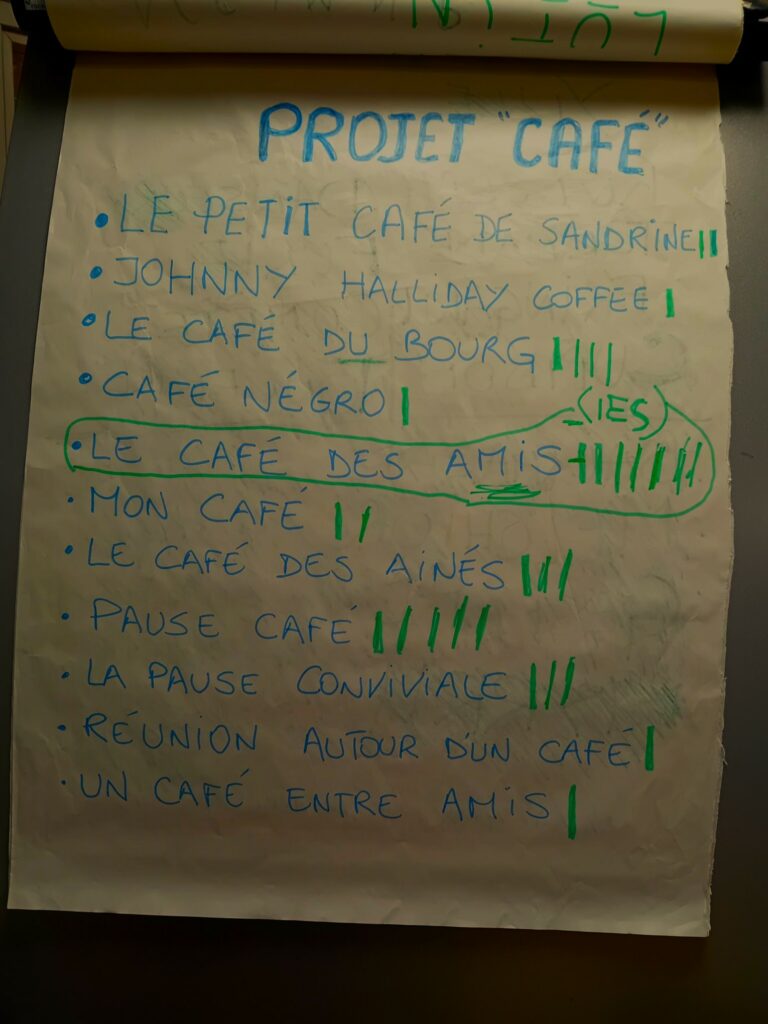 PROJET "CAFÉ"
• LE PETIT CAFÉ DE SANDRINE ||
• JOHNNY HALLIDAY COFFEE |
• LE CAFÉ DU BOURG ||||
• CAFÉ NÉGRO |
(IES)
• LE CAFÉ DES AMIS ||||||||
• MON CAFÉ ||
• LE CAFÉ DES AINÉS |||
• PAUSE CAFÉ |||||
• LA PAUSE CONVIVIALE |||
• RÉUNION AUTOUR D'UN CAFÉ |
• UN CAFÉ ENTRE AMIS |